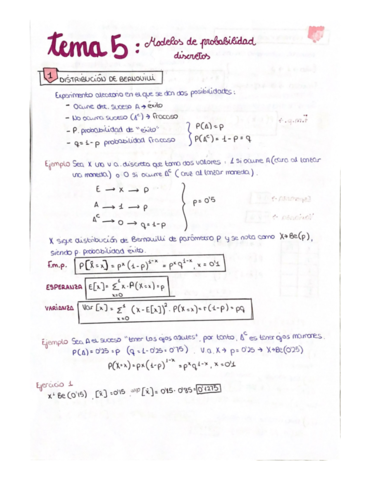 tema 5: Modelos de probabilidad
discretos
1 DISTRIBUCIÓN DE BERNOUILLI
Experimento aleatorio en el que se dan dos posibilidades:
- Ocurre dho. suceso A → éxito
- No ocurra suceso (Aᶜ) → fracaso
- P. probabilidad de "éxito"
P(A)=p
- q=1-p probabilidad fracaso
P(Aᶜ)=1-p=q
Ejemplo Sea X una v.a. discreta que toma dos valores: 1 si ocurre A (cara al lanzar
una moneda) o 0 si ocurre Aᶜ (cruz al lanzar moneda).
E → X → p
A → 1 → p
p=0'5
Aᶜ → 0 → q=1-p
X sigue distribución de Bernouilli de parámetro p y se nota como X→Be(p),
siendo p probabilidad éxito.
F.m.p. P[X=x]=pˣ(1-p)¹⁻ˣ=pˣq¹⁻ˣ, x=0,1
ESPERANZA E[x]=Σ x·P(X=x)=p
x=0
VARIANZA Var[x]=Σ (x-E[x])²·P(X=x)=p(1-p)=pq
x=0
Ejemplo Sea A el suceso "tener los ojos azules", por tanto, Aᶜ es tener ojos marrones.
P(A)=0'25=p (q=1-0'25=0'75) V.a. X → p=0'25 → X→Be(0'25)
P(X=x)=pˣ(1-p)¹⁻ˣ=pˣq¹⁻ˣ, x=0,1
Ejercicio 1